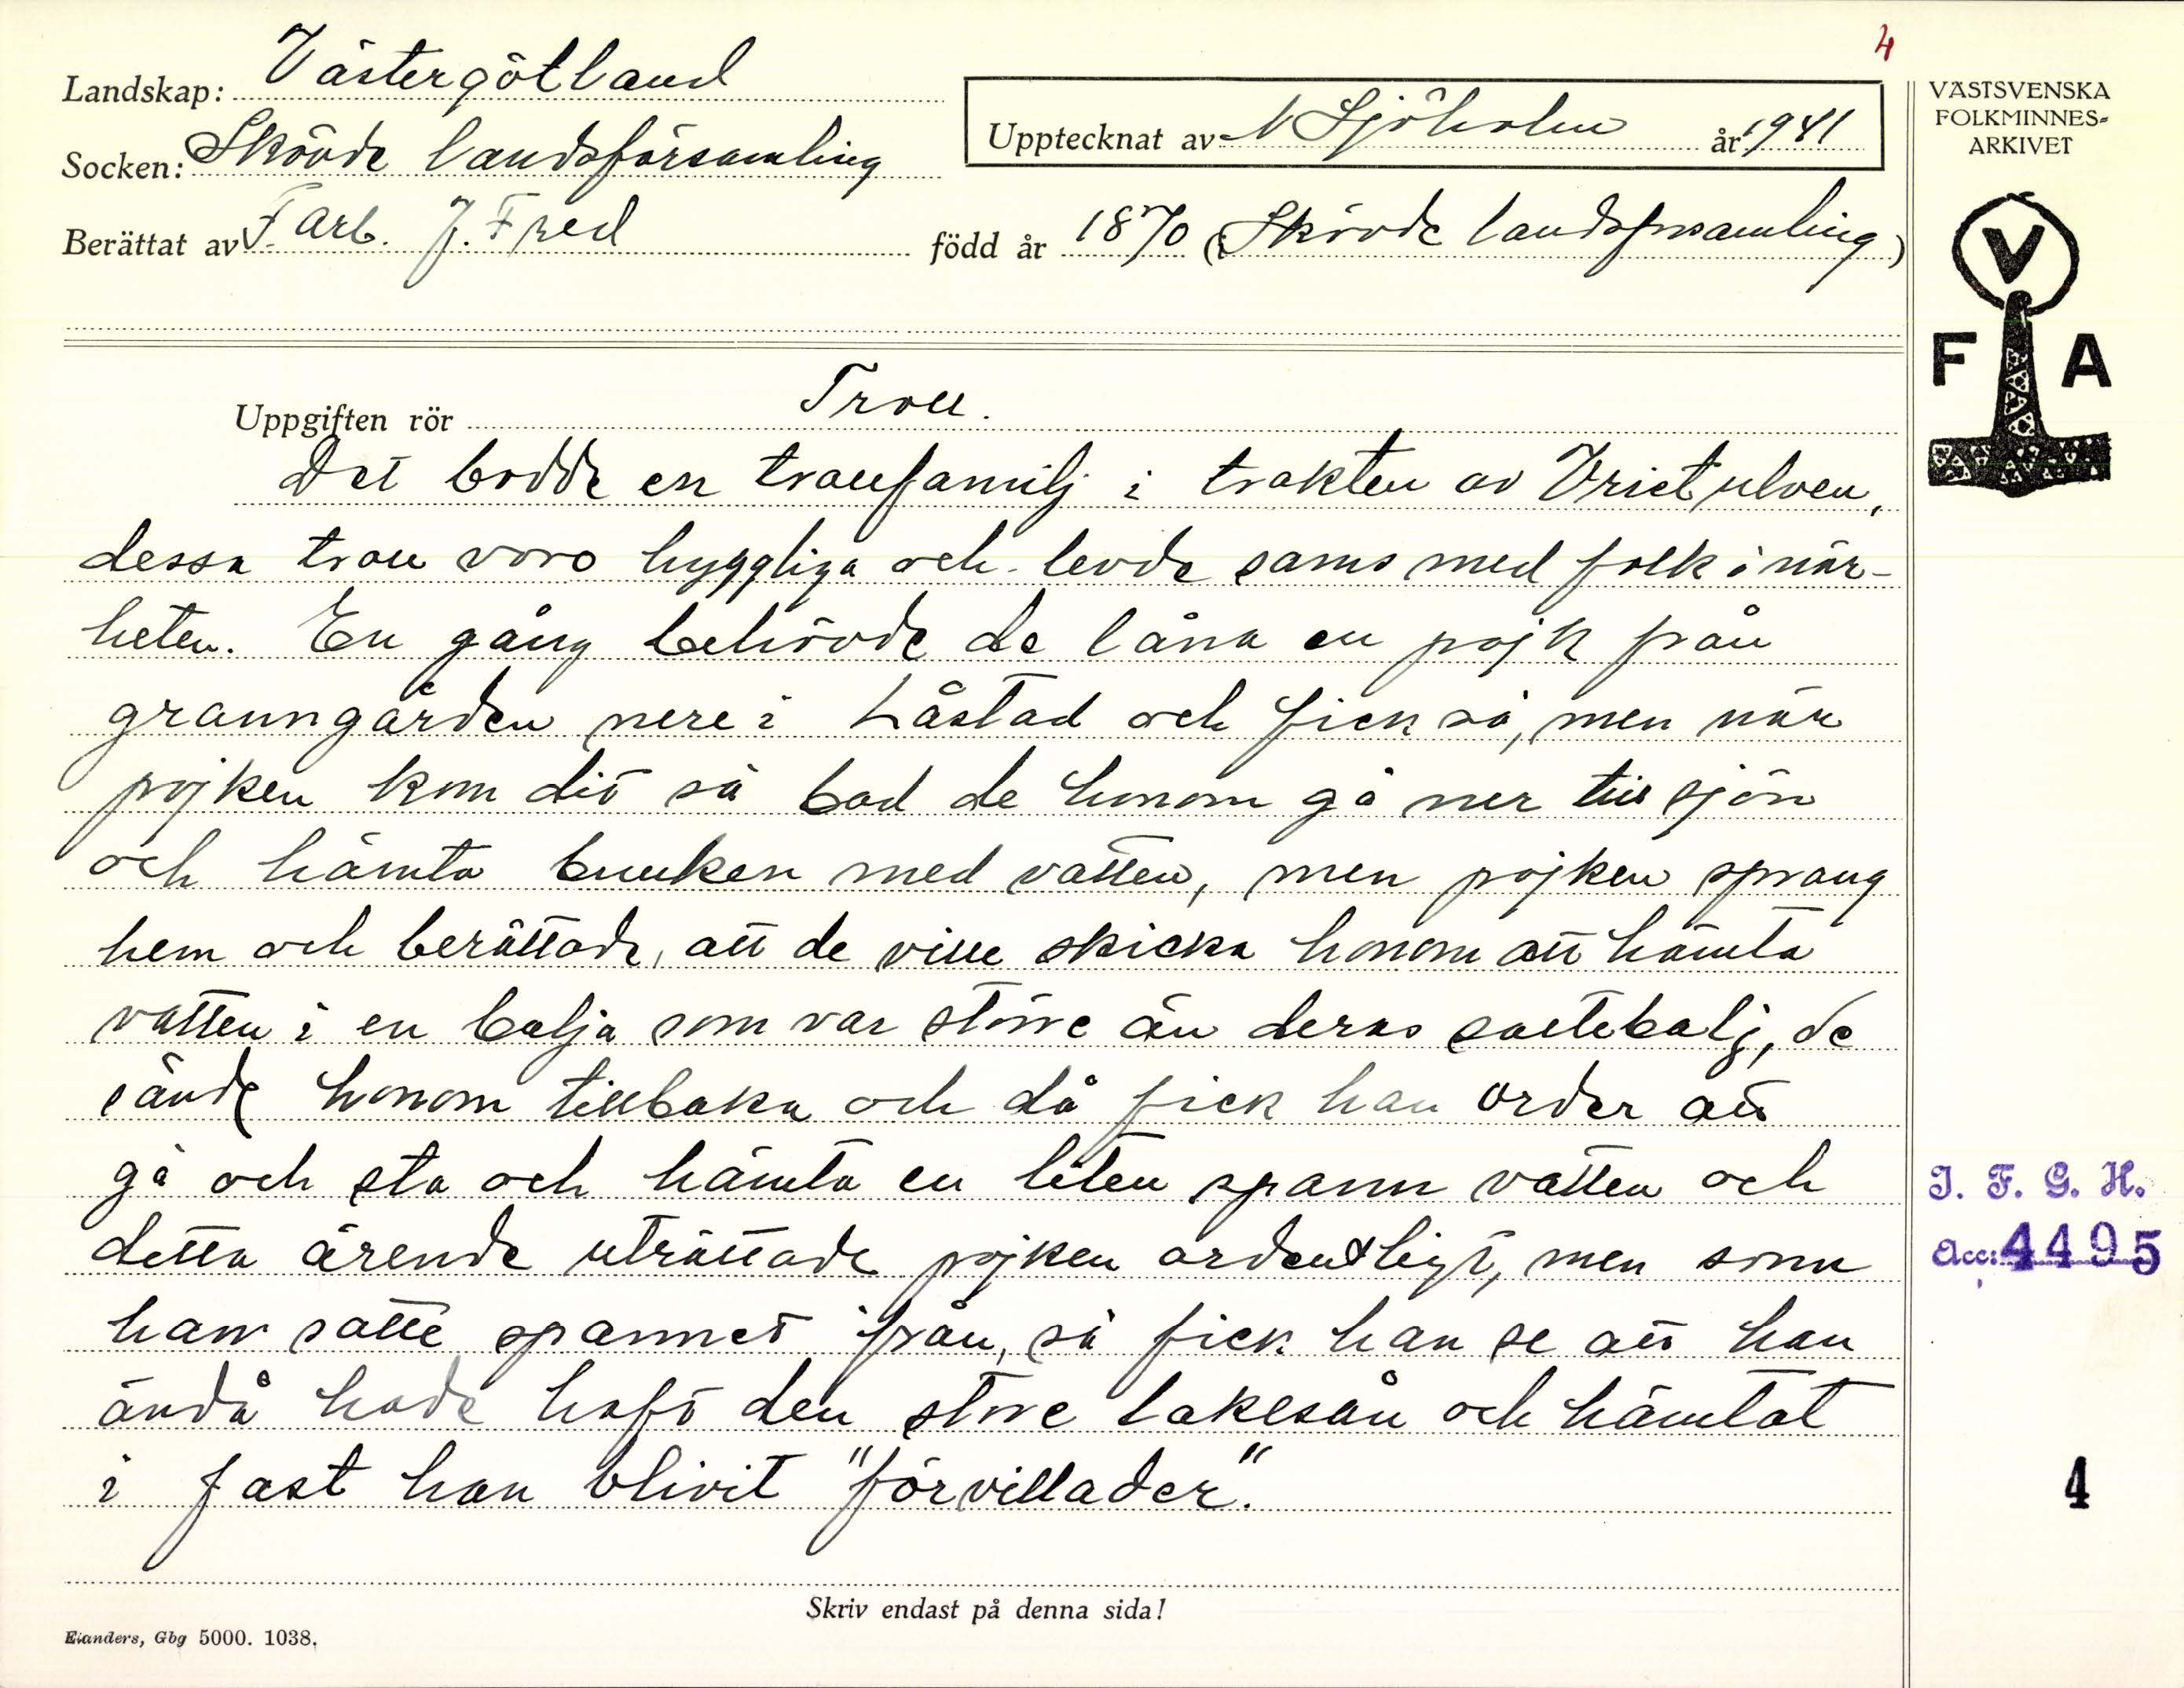 4
Landskap: Västergötland
Socken: Skövde landsförsamling
Upptecknat av N Sjöholm år 1941
Berättat av F. arb. J. Fred född år 1870 (i Skövde landsförsamling)
VÄSTSVENSKA
FOLKMINNES-
ARKIVET
V
F A
Uppgiften rör Troll.
Det bodde en trollfamilj i trakten av Vristulven,
dessa troll voro hyggliga och levde sams med folk i när-
heten. En gång behövde de låna en pojk från
granngården nere i Låstad och fick så, men när
pojken kom dit så bad de honom gå ner till sjön
och hämta bunken med vatten, men pojken sprang
hem och berättade, att de ville skicka honom att hämta
vatten i en balja som var större än deras saltebalj, de
sände honom tillbaka och då fick han order att
gå och sta och hämta en liten spann vatten och
detta ärende uträttade pojken ordentligt, men som
han satte spannet ifrån, så fick han se att han
ändå hade haft den store lakesån och hämtat
i fast han blivit "förvillader".
I. F. G. H.
Acc: 4495
4
Skriv endast på denna sida!
Elanders, Gbg 5000. 1038.